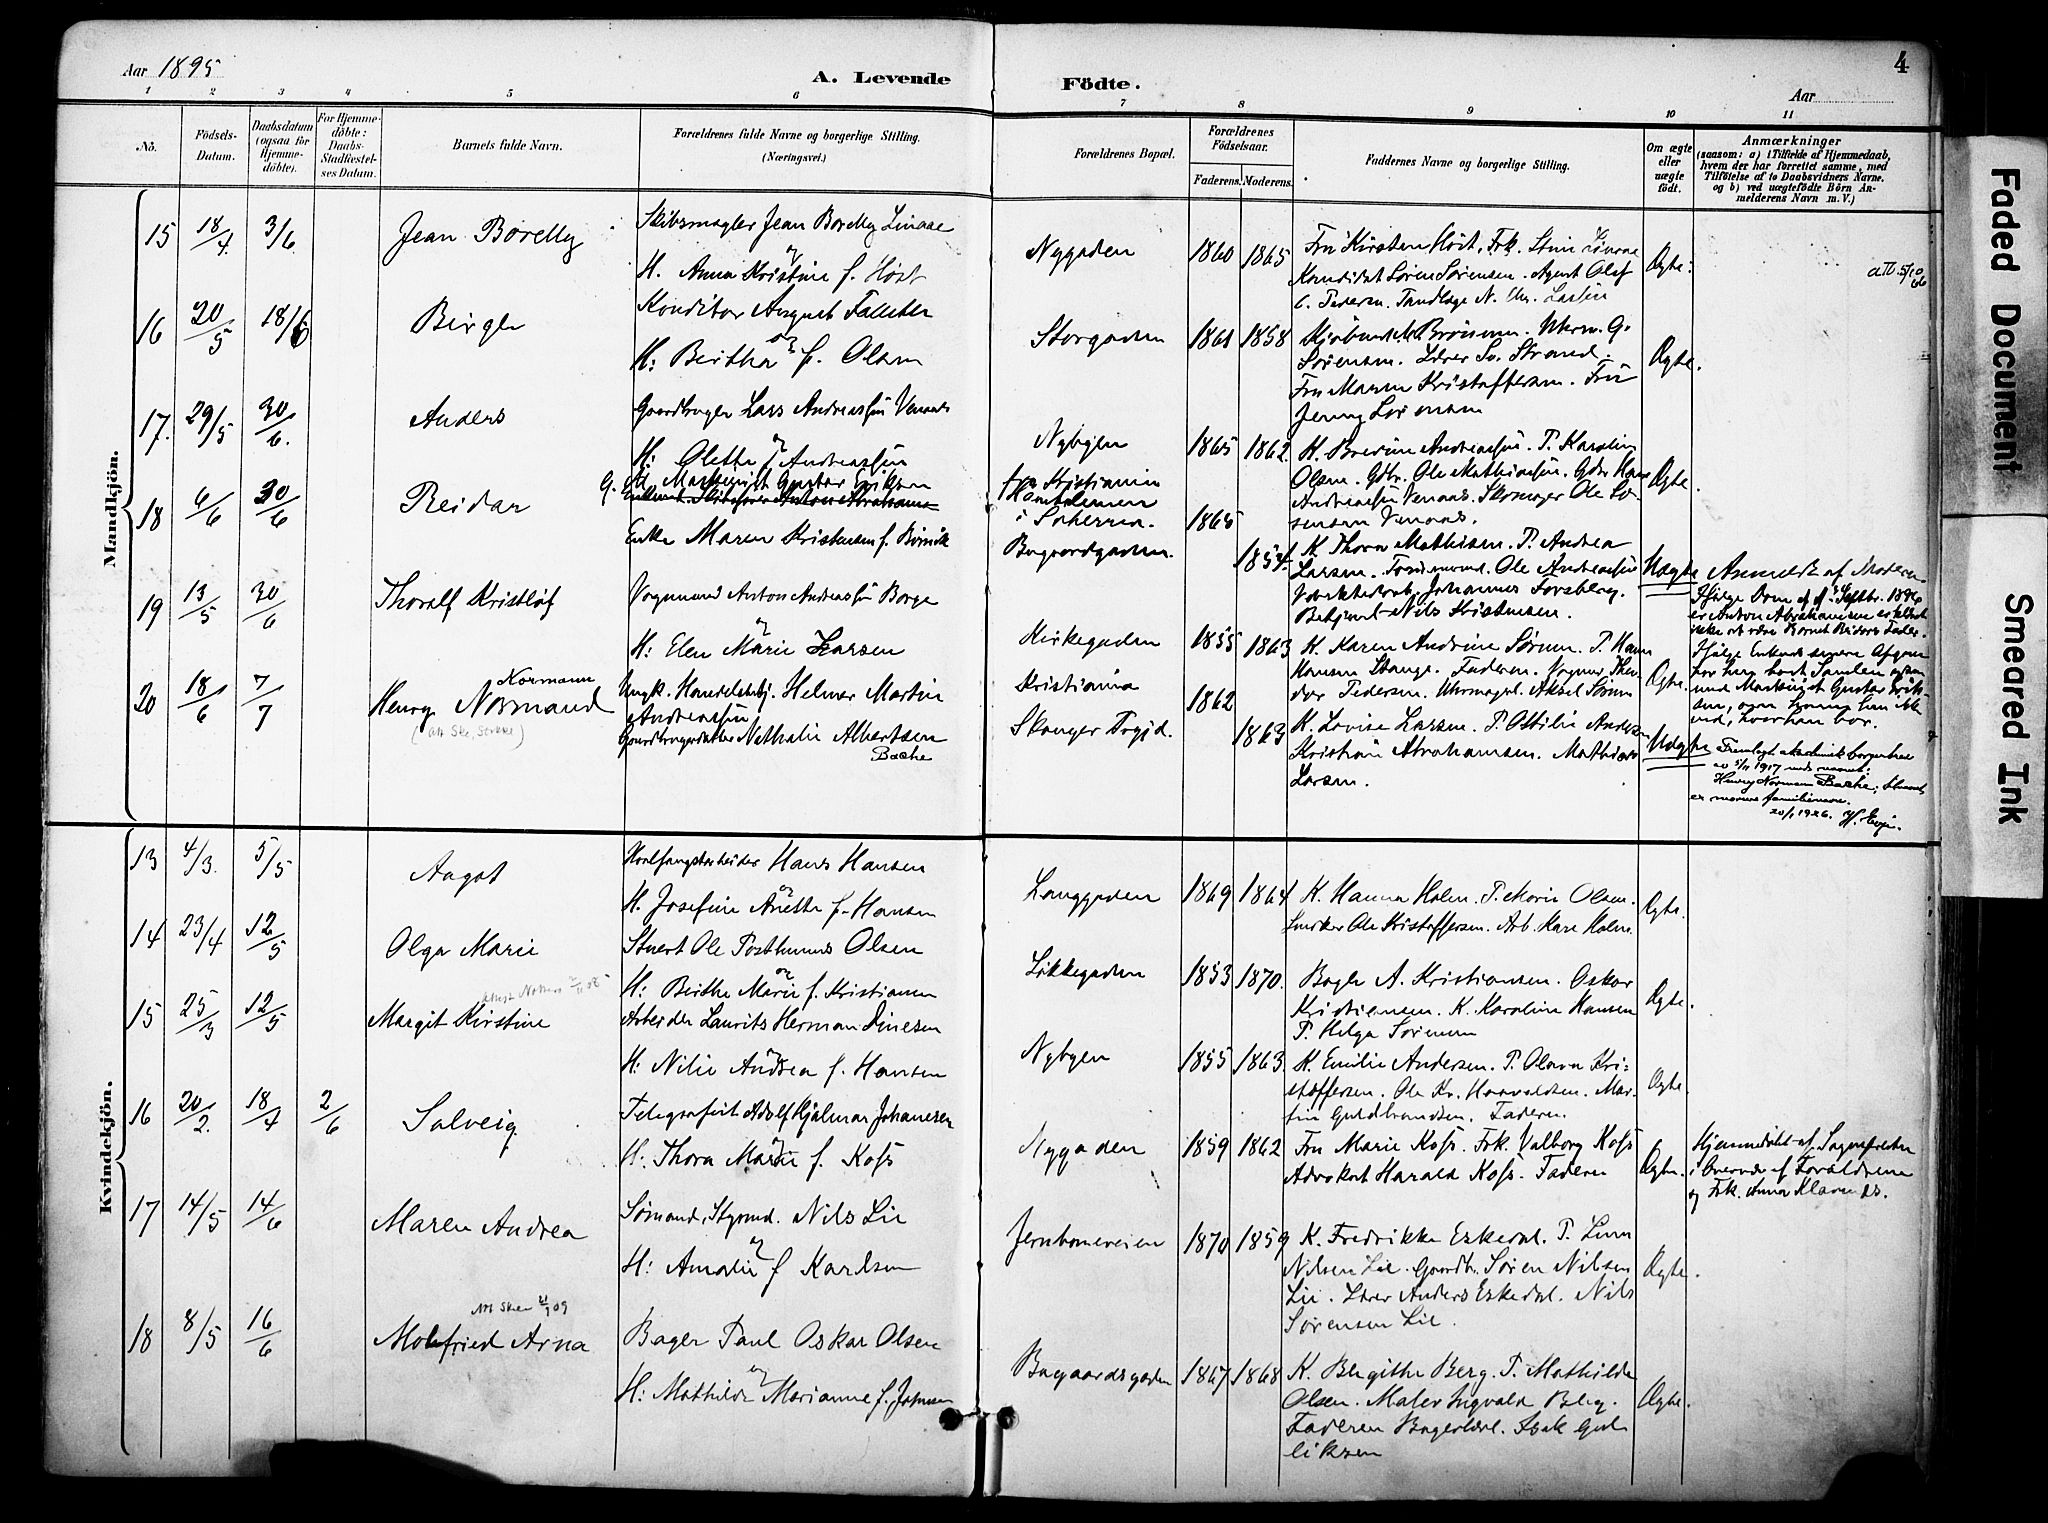 Aar 1895
A. Levende
Fødte.
4
Aar
1 2 3 4 5 6 7 8 9 10 11
No.
Fødsels-Datum.
Daabsdatum (ogsaa for Hjemmedøbte).
For Hjemmedøbte: Daabs-Stadfæstelses Datum.
Barnets fulde Navn.
Forældrenes fulde Navne og borgerlige Stilling. (Næringsvei.)
Forældrenes Bopæl.
Forældrenes Fødselsaar.
Faderens. Moderens.
Faddernes Navne og borgerlige Stilling.
Om ægte eller uægte født.
Anmærkninger
(saasom: a) i Tilfælde af Hjemmedaab, hvem der har forrettet samme, med Tilføielse af to Daabsvidners Navne. og b) ved uægtefødte Børn Anmelderens Navn m. V.)
Mandkjøn.
15 18/4 3/6 Jean Borelly
Skibsmægler Jean Borelly Linaae
og
H. Anna Kristine f. Høst
Nygaden 1860 1865
Fru Kirsten Høst, Frk. Stina
Kandidat Søren Sørensen. Agent Olaf
C. Pedersen. Tandlæge N. Chr.
Ægte.
16 20/5 18/6 Birger
Konditor August
og
H: Bertha f. Olsen
Storgaden 1861 1858
Sørensen. Lærer Sv. Strand.
Fru Maren Kristoffersen. Fru
Jenny Sørensen
Ægte.
17. 29/5 30/6. Anders
Gaardbruger Lars Andreassen Venaas
og
H: Olette f. Andreassen
Nybyen 1865 1862.
K. Andreassen. P. Karoline
Olsen. Gdbr. Ole Mathiassen. Gdbr. Hans
Andreassen Venaas. Skomager Ole
Venaas.
Ægte.
18 6/6 30/6 Reidar
G. M. Maskinist Gustav Eriksen
Enkemd. Skibsfører Anton Abrahamsen
Enke Maren Kristensen f.
fra Kristiania
1865
Bagaardgaden. 1854
K. Thora Mathisen. P. Andrea
Larsen. Formand. Ole Andreassen
Johannes Forsberg.
Betjent Nils Kristensen.
Uægte
Anmeldt af Moderen.
Ifølge Dom af Septbr. 1896
er Anton Abrahamsen erklæret
ikke at være Barnet Reidars Fader.
Ifølge Enkens senere
har hun havt Samleie ogsaa
med Maskinist Gustav Eriksen,
ved, hvor han bor.
19 13/5 30/6 Thoralf Kristlof
Vognmand Anton Andreassen Borge
og
H: Elen Marie Larsen
Kirkegaden 1855 1863
K. Karen Andrine Sørum. P.
Hansen Stange. Faderen. Vognm.
Pedersen. Uhrmager. Aksel Sørum
Ægte.
20 18/6 7/7 Henry Normand
Normann
Ungk. Handelsbetj. Helmer Martin
Andreassen
Gaardbrugerdatter Nathalie Albertsen
Bache
Kristiania 1862
Skanger Tryjd. 1863
K. Lovise Larsen. P. Ottilie Andersen
Kristian Abrahamsen. Mathias
Larsen.
Uægte
5/11 1917 med navnet:
Henry Normann Bache,
er morens familienavn.
20/1 1926.
Kvindekjön.
13 4/3. 5/5 Aagot
Hvalfangstarbeider Hans Hansen
og
H. Josefine Anette f. Hansen
Langgaden 1869 1864
K. Hanna Holm. P. Marie Olsen.
Snedker Ole Kristoffersen. Arb. Kare Holm.
Ægte.
14 23/4 12/5 Olga Marie
Stuert Ole Posthumus Olsen
og
H: Birthe Marie f. Kristiansen
Løkkegaden 1853 1870.
Bager A. Kristiansen. Oskar
Kristiansen. K. Karoline Hansen
P. Helga Sørensen
Ægte.
15 25/3 12/5 Margit Kirstine
Arbeider Laurits Herman Dinesen
og
H: Nilie Andrea f. Hansen
Nybyen 1855 1863.
K. Emilie Andersen. P. Olava Kristoffersen.
Ole Kr. Haavaldsen. Martin
Guldbrandsen. Faderen.
Ægte.
16 20/2. 18/4 2/6 Solveig
Telegrafist Adolf Hjalmar Johanesen
og
H: Thora Marie f. Koss
Nygaden 1859 1862
Fru Marie Koss. Frk. Valborg Koss
Advokat Harald Koss. Faderen
Ægte.
Hjemmedøbt af Sognepræsten
i Overvær af Forældrene
og Frk. Anna
17 14/5 14/6 Maren Andrea
Sømand, Styrmd. Nils Lie
og
H: Amalie f. Karlsen
Jernbaneveien 1870 1859
K. Fredrikke Eskedal. P.
Nilsen Lie. Gaardb. Søren Nilsen
Lie. Lærer Anders Eskedal. Nils
Sørensen Lie.
Ægte.
18 8/5 16/6 Molfried Arna
Bager Paul Oskar Olsen
og
H: Mathilde Marianne f. Johnsen
Bagaardsgaden 1867 1868
K. Birgithe Berg. P. Mathilde
Olsen. Maler Ingvald Berg.
Faderen Isak Gulliksen
Ægte.
Faded Document
Smeared Ink